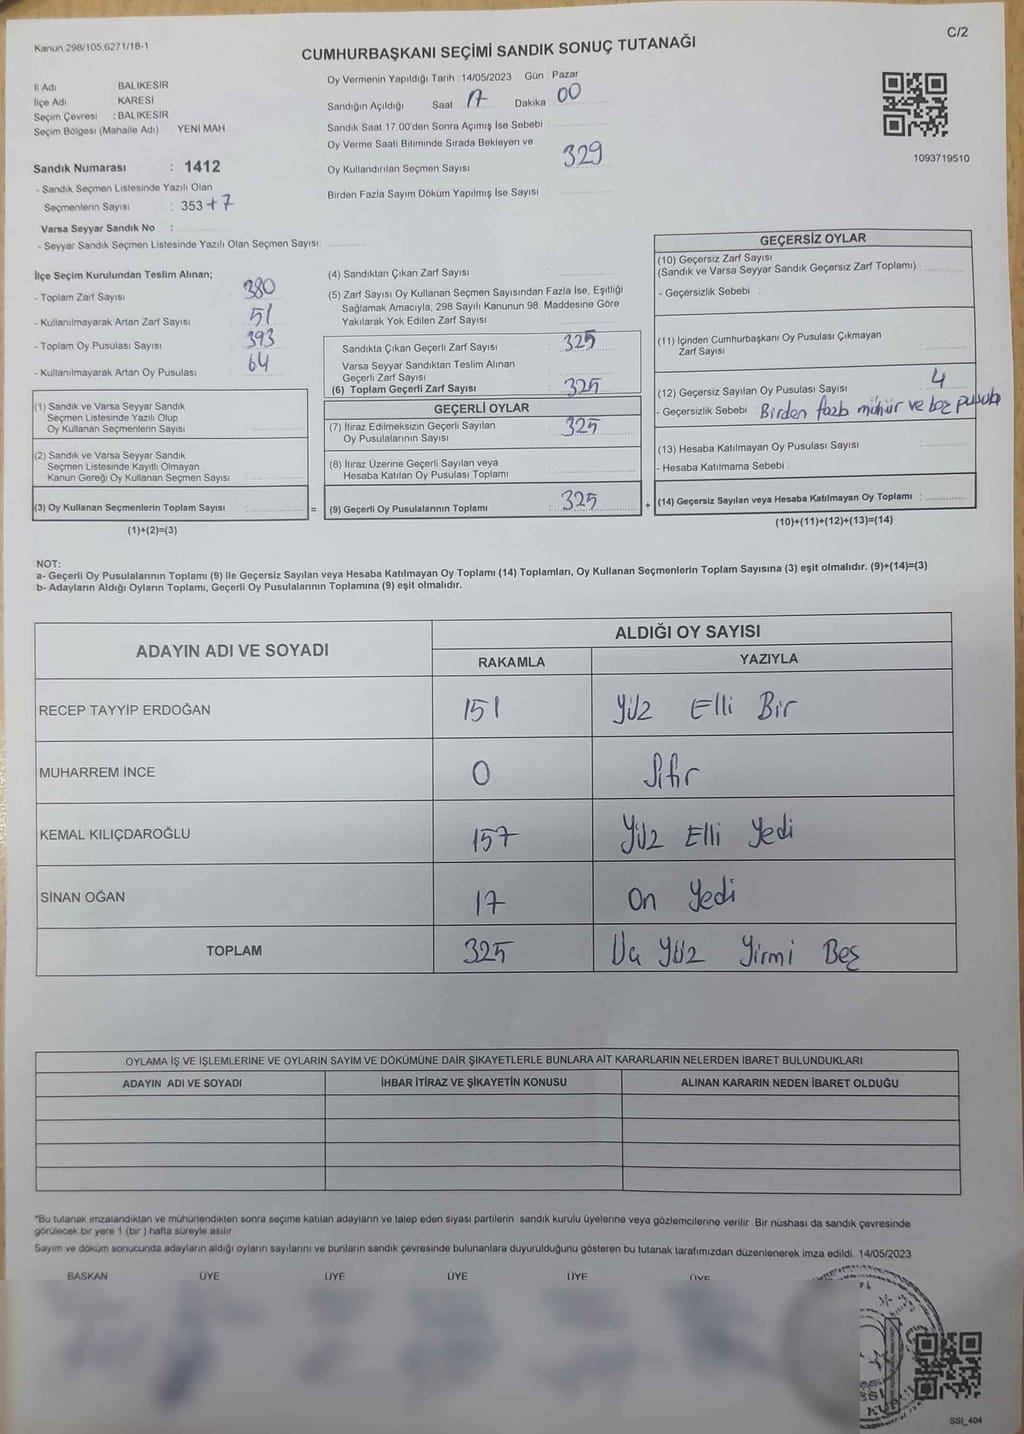 Kanun 298/105,6271/18-1
C/2
CUMHURBAŞKANI SEÇİMİ SANDIK SONUÇ TUTANAĞI
İl Adı BALIKESİR
İlçe Adı KARESİ
Seçim Çevresi : BALIKESİR
Seçim Bölgesi (Mahalle Adı) YENİ MAH
Sandık Numarası : 1412
- Sandık Seçmen Listesinde Yazılı Olan
Seçmenlerin Sayısı : 353+7
Varsa Seyyar Sandık No :
- Seyyar Sandık Seçmen Listesinde Yazılı Olan Seçmen Sayısı:
Oy Vermenin Yapıldığı Tarih : 14/05/2023 Gün : Pazar
Sandığın Açıldığı Saat 17 Dakika 00
Sandık Saat 17.00'den Sonra Açımış İse Sebebi :
Oy Verme Saati Bitiminde Sırada Bekleyen ve
Oy Kullandırılan Seçmen Sayısı : 329
Birden Fazla Sayım Döküm Yapılmış İse Sayısı :
1093719510
İlçe Seçim Kurulundan Teslim Alınan;
- Toplam Zarf Sayısı : 380
- Kullanılmayarak Artan Zarf Sayısı : 51
- Toplam Oy Pusulası Sayısı : 393
- Kullanılmayarak Artan Oy Pusulası : 64
(1) Sandık ve Varsa Seyyar Sandık
Seçmen Listesinde Yazılı Olup
Oy Kullanan Seçmenlerin Sayısı :
(2) Sandık ve Varsa Seyyar Sandık
Seçmen Listesinde Kayıtlı Olmayan
Kanun Gereği Oy Kullanan Seçmen Sayısı :
(3) Oy Kullanan Seçmenlerin Toplam Sayısı : =
(1)+(2)=(3)
(4) Sandıktan Çıkan Zarf Sayısı :
(5) Zarf Sayısı Oy Kullanan Seçmen Sayısından Fazla İse, Eşitliği
Sağlamak Amacıyla, 298 Sayılı Kanunun 98. Maddesine Göre
Yakılarak Yok Edilen Zarf Sayısı :
Sandıkta Çıkan Geçerli Zarf Sayısı : 325
Varsa Seyyar Sandıktan Teslim Alınan
Geçerli Zarf Sayısı :
(6) Toplam Geçerli Zarf Sayısı : 325
GEÇERLİ OYLAR
(7) İtiraz Edilmeksizin Geçerli Sayılan : 325
Oy Pusulalarının Sayısı
(8) İtiraz Üzerine Geçerli Sayılan veya
Hesaba Katılan Oy Pusulası Toplamı :
(9) Geçerli Oy Pusulalarının Toplamı : 325 +
GEÇERSİZ OYLAR
(10) Geçersiz Zarf Sayısı
(Sandık ve Varsa Seyyar Sandık Geçersiz Zarf Toplamı) :
- Geçersizlik Sebebi :
(11) İçinden Cumhurbaşkanı Oy Pusulası Çıkmayan
Zarf Sayısı :
(12) Geçersiz Sayılan Oy Pusulası Sayısı : 4
- Geçersizlik Sebebi : Birden fazla mühür ve boş pusula
(13) Hesaba Katılmayan Oy Pusulası Sayısı :
- Hesaba Katılmama Sebebi :
(14) Geçersiz Sayılan veya Hesaba Katılmayan Oy Toplamı :
(10)+(11)+(12)+(13)=(14)
NOT:
a- Geçerli Oy Pusulalarının Toplamı (9) ile Geçersiz Sayılan veya Hesaba Katılmayan Oy Toplamı (14) Toplamları, Oy Kullanan Seçmenlerin Toplam Sayısına (3) eşit olmalıdır. (9)+(14)=(3)
b- Adayların Aldığı Oyların Toplamı, Geçerli Oy Pusulalarının Toplamına (9) eşit olmalıdır.
ADAYIN ADI VE SOYADI ALDIĞI OY SAYISI
RAKAMLA YAZIYLA
RECEP TAYYİP ERDOĞAN 151 Yüz Elli Bir
MUHARREM İNCE 0 Sıfır
KEMAL KILIÇDAROĞLU 157 Yüz Elli Yedi
SİNAN OĞAN 17 On Yedi
TOPLAM 325 Üç Yüz Yirmi Beş
OYLAMA İŞ VE İŞLEMLERİNE VE OYLARIN SAYIM VE DÖKÜMÜNE DAİR ŞİKAYETLERLE BUNLARA AİT KARARLARIN NELERDEN İBARET BULUNDUKLARI
ADAYIN ADI VE SOYADI İHBAR İTİRAZ VE ŞİKAYETİN KONUSU ALINAN KARARIN NEDEN İBARET OLDUĞU
*Bu tutanak imzalandıktan ve mühürlendikten sonra seçime katılan adayların ve talep eden siyasi partilerin sandık kurulu üyelerine veya gözlemcilerine verilir. Bir nüshası da sandık çevresinde
görülecek bir yere 1 (bir ) hafta süreyle asılır.
Sayım ve döküm sonucunda adayların aldığı oyların sayılarını ve bunların sandık çevresinde bulunanlara duyurulduğunu gösteren bu tutanak tarafımızdan düzenlenerek imza edildi. 14/05/2023
BAŞKAN ÜYE ÜYE ÜYE ÜYE ÜYE
SSI_404